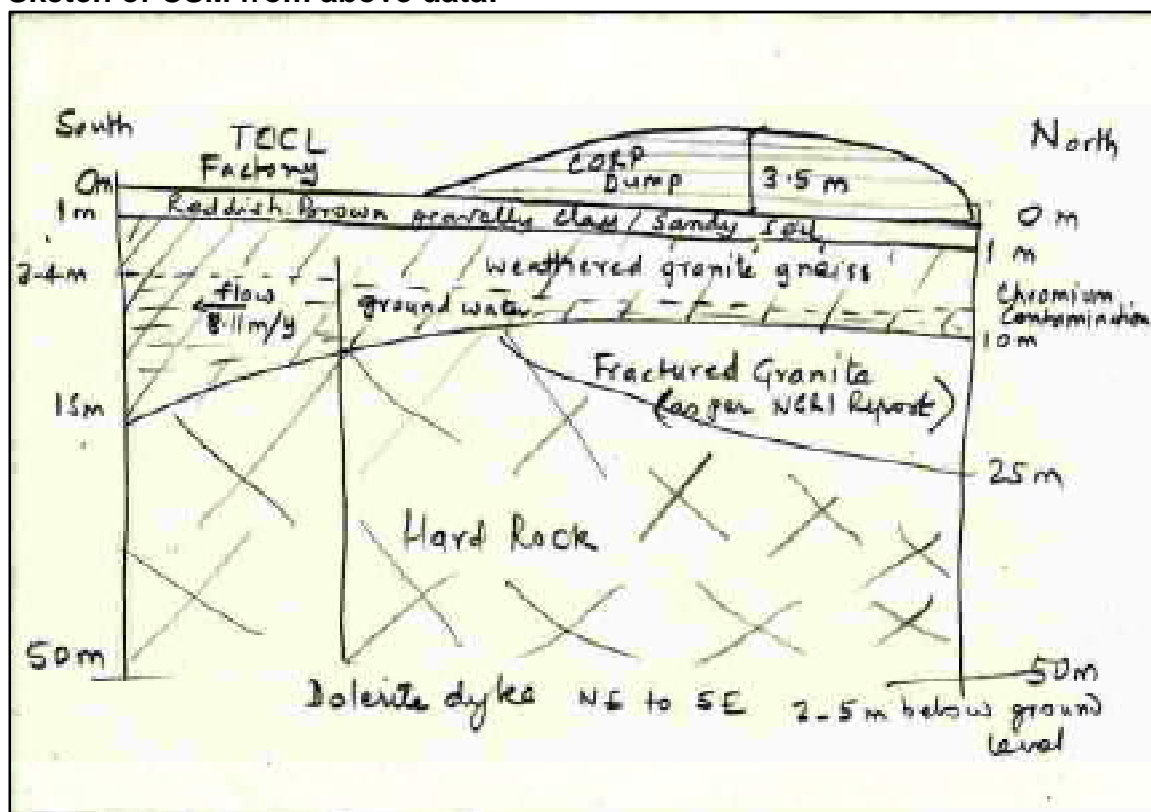 Sketch of CSM from above data:
South
TCCL
Factory
CORP
Dump
3.5 m
North
0m
1m
Reddish Brown gravelly clay / Sandy soil
0 m
1 m
weathered granite gneiss
2-4m
flow
8.11m/y
ground water
Chromium
Contamination
10m
Fractured Granite
(as per NGRI Report)
15m
25m
Hard Rock
50m
50m
Dolerite dyke NE to SE 2-5m below ground
level